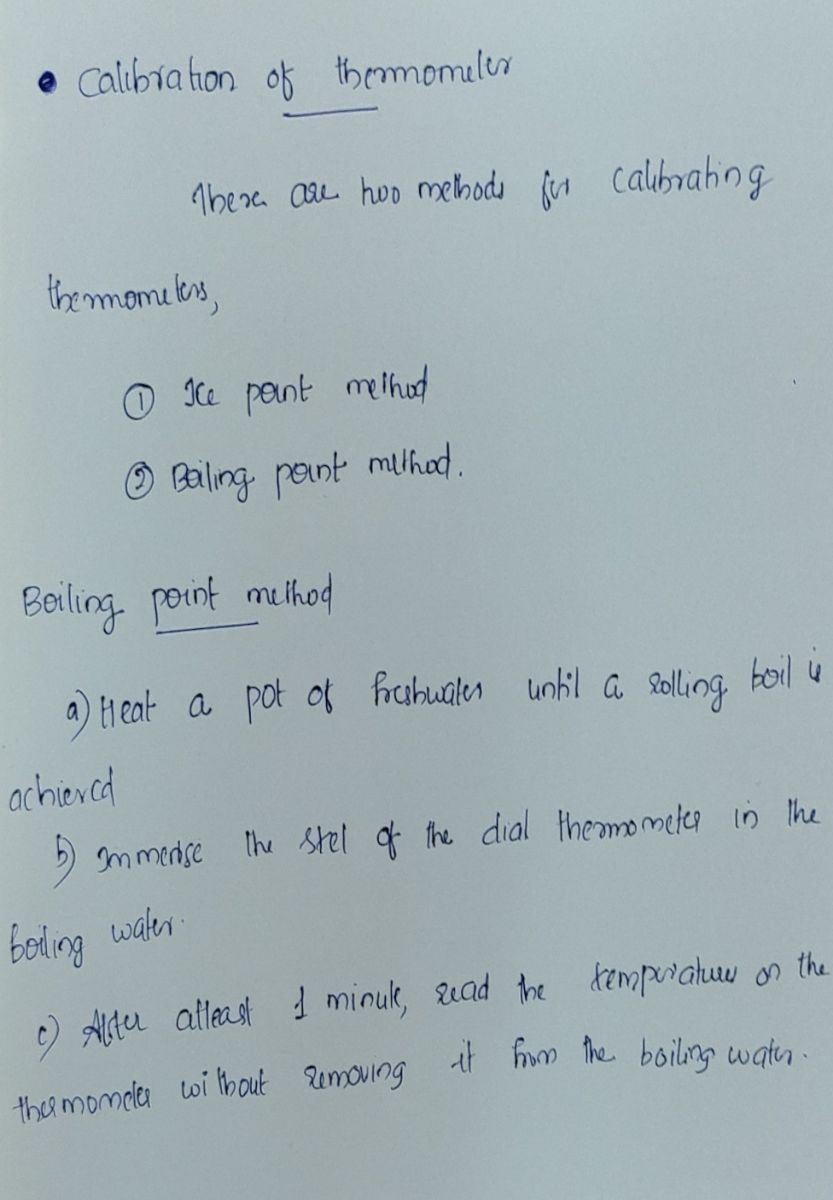 • Calibration of thermometer
There are two methods for calibrating
thermometers,
① Ice point method
② Boiling point method.
Boiling point method
a) Heat a pot of freshwater until a rolling boil is
achieved
b) Immerse the stel of the dial thermometer in the
boiling water.
c) After atleast 1 minute, read the temperature on the
thermometer without removing it from the boiling water.